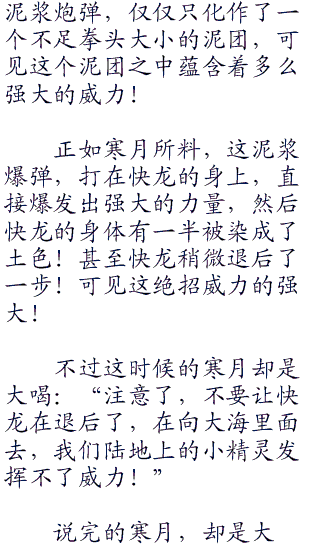 泥浆炮弹，仅仅只化作了一
个不足拳头大小的泥团，可
见这个泥团之中蕴含着多么
强大的威力！
正如寒月所料，这泥浆
爆弹，打在快龙的身上，直
接爆发出强大的力量，然后
快龙的身体有一半被染成了
土色！甚至快龙稍微退后了
一步！可见这绝招威力的强
大！
不过这时候的寒月却是
大喝：“注意了，不要让快
龙在退后了，在向大海里面
去，我们陆地上的小精灵发
挥不了威力！”
说完的寒月，却是大